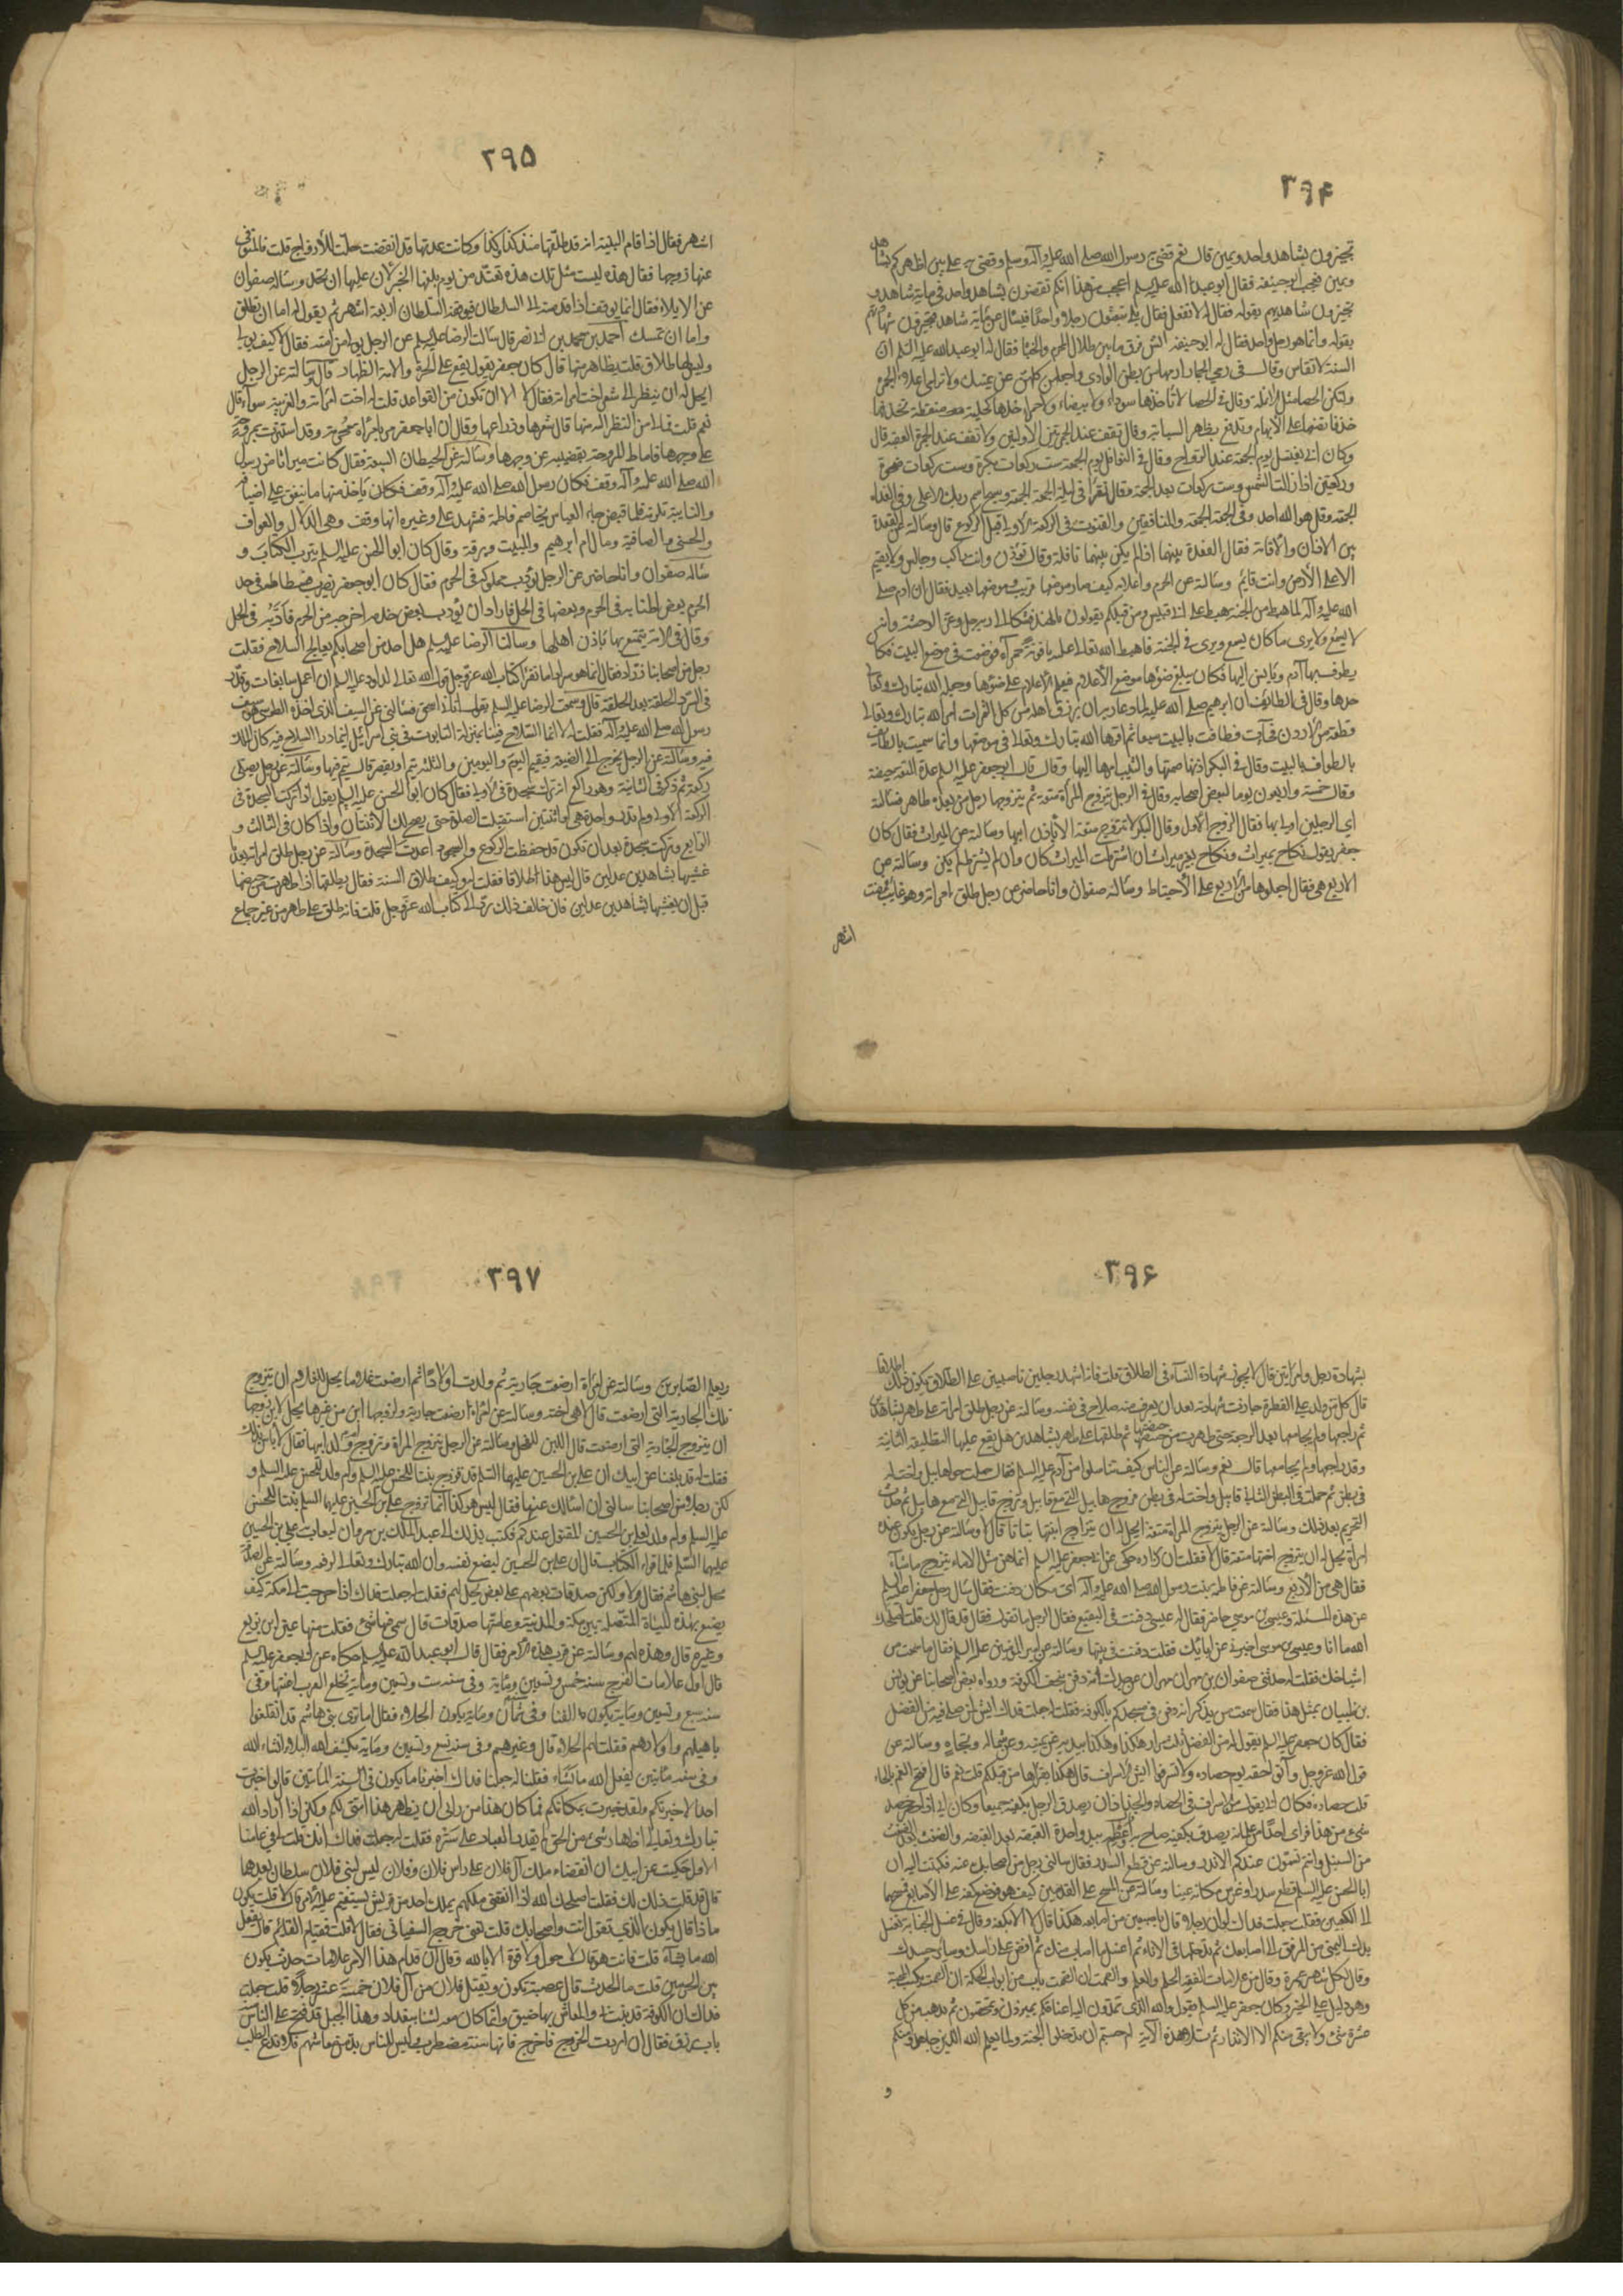 ٣٩۴
تجيزون بشاهد واحد ويمين قال نعم قضى به رسول الله صلى الله عليه وآله وسلم وقضى به على بين اظهركم بشاهد
ويمين فعجب ابو حنيفة فقال ابو عبد الله عليه السلم اعجب من هذا انكم تقضون بشاهد واحد في ماية شاهد و
تجيزون بقوله فقال له لا نفعل فقال بلى تبعثون رجلا واحدا فيسأل عن ماية شاهد فتجيزون شهادتهم
بقوله وانما هو رجل واحد فقال له ابو حنيفة ايش فرق ما بين ظلال المحرم والخباء فقال له ابو عبد الله عليه السلم ان
السنة لا تقاس وقال في رمي الجمار ارمها من بطن الوادي واجعلهن كلهن عن يمينك ولا ترم اعلا الجمرة
ولتكن الحصا مثل الانملة وقال في الحصا لا تأخذها سوداء ولا بيضاء ولا حمراء خذها كحلية منقطة تخذفها
خذفا تضعها على الابهام وتدفع بظاهر السبابة وقال تقف عند الجمرتين الاوليين ولا تقف عند الجمرة العقبة قال
وكان ابي يغتسل يوم الجمعة عند الرواح وقال في النوافل يوم الجمعة ست ركعات بكرة وست ركعات ضحوة
وركعتين اذا زالت الشمس وست ركعات بعد الجمعة وقال تقرأ في ليلة الجمعة الجمعة وسبح اسم ربك الاعلى وفي الغداة
الجمعة وقل هو الله احد وفي الجمعة الجمعة والمنافقين والقنوت في الركعة الاولى قبل الركوع قال وسألته عن القعدة
بين الاذان والاقامة فقال القعدة بينهما اذا لم يكن بينهما نافلة وقال تؤذن وانت راكب وجالس ولا تقيم
الا على الارض وانت قائم وسألته عن الحرم واعلامه كيف صار بعضها قريب وبعضها بعيد فقال ان ادم صلى
الله عليه وآله لما هبط من الجنة هبط على ابي قبيس ومن قبلكم يقولون بالهند فشكا الى ربه عز وجل الوحشة وانه
لا يسمع ولا يرى ما كان يسمع ويرى في الجنة فاهبط الله تعالى عليه ياقوتة حمراء فوضعت في موضع البيت فكان
يطوف بها آدم وكان يبلغ ضوؤها موضع الاعلام فيعلم الاعلام على ضوئها وجعله الله تبارك وتعالى
حرما وقال في الطائف ان ابرهيم صلى الله عليه لما دعا ربه ان يرزق اهله من كل الثمرات امر الله تبارك وتعالى
قطعة من الاردن فجآءت فطافت بالبيت سبعا ثم اقرها الله تبارك وتعالى في موضعها وانما سميت بالطايف
بالطواف بالبيت وقال في البكر اذنها صمتها والثيب امرها اليها وقال قال ابو جعفر عليه السلم عدة المتعة حيضة
وقال خمسة واربعون يوما لبعض اصحابه وقال في الرجل يتزوج المرأة متعة ثم يتزوجها رجل من بعده ظاهر فسألته
اي الرجلين اولى بها فقال الزوج الاول وقال البكر لا تتزوج متعة الا بإذن ابيها وسألته عن الميراث فقال كان
جعفر يقول نكاح بميراث ونكاح بغير ميراث ان اشترطت الميراث كان وان لم يشترط لم يكن وسألته من
الاربع هي فقال اجعلوها من الاربع على الاحتياط وسأله صفوان وانا حاضر عن رجل طلق امراته وهو غايب فمضت
اشهر
٣٩۵
اشهر فقال اذا قام البينة انه قد طلقها منذ كذا وكذا وكانت عدتها قد انقضت حلت للازواج قلت فالمتوفى
عنها زوجها فقال هذه ليست مثل تلك هذه تعتد من يوم يبلغها الخبر لان عليها ان تحد وسأله صفوان
عن الايلاء فقال انما يوقف اذا قدمته الى السلطان فيوقفه السلطان اربعة اشهر ثم يقول له اما ان تطلق
واما ان تمسك احمد بن محمد بن ابي نصر قال سألت الرضا عليه السلم عن الرجل يولى من امته فقال لا كيف يولى
وليس لها طلاق قلت يظاهر منها قال كان جعفر يقول يقع على الحرة والامة الظهار قال وسألته عن الرجل
ايحل له ان ينظر الى شعر اخت امراته فقال لا الا ان تكون من القواعد قلت له اخت امراته والغريبة سواء قال
نعم قلت فمالي من النظر اليه منها قال شعرها وذراعها وقال ان ابا جعفر مر بامراة محرمة وقد استترت بمروحة
على وجهها فاماط المروحة بقضيبه عن وجهها وسألته عن الحيطان السبعة فقال كانت ميراثا من رسول
الله صلى الله عليه وآله وقف فكان رسول الله صلى الله عليه وآله وقف فكان يأخذ منها ما ينفق على اضيافه
والنايبة تلزمه فلما قبض جاء العباس يخاصم فاطمة فشهد علي وغيره انها وقف وهي الدلال والعواف
والحسنى والصافية ومال ام ابرهيم والمبيت وبرقة وقال كان ابو الحسن عليه السلم يترب الكتاب و
سأله صفوان وانا حاضر عن الرجل يؤدب مملوكه في الحرم فقال كان ابو جعفر يضرب فسطاطه في حد
الحرم بعض اطنابه في الحرم وبعضها في الحل فاذا اراد ان يؤدب بعض خدمه اخرجه من الحرم فادبه في الحل
وقال في الامة يتمتع بها باذن اهلها وسألنا الرضا عليه السلم هل احد من اصحابكم يعالج السلاح فقلت
رجل من اصحابنا زراد فقال انما هو سراد اما تقرأ كتاب الله عز وجل قول الله تعالى لداود عليه السلم ان اعمل سابغات وقدر
في السرد الحلقة بعد الحلقة قال وسمعت الرضا عليه السلم يقول فسألني عن السيف الذي اخذه الطوسي هو سيف
رسول الله صلى الله عليه وآله فقلت له لا انما السلاح فينا بمنزلة التابوت في بني اسرائيل اينما دار السلاح فيه كان الملك
فيه وسألته عن الرجل يخرج الى الضيعة فيقيم اليوم واليومين والثلثة يتم او يقصر قال يتم فيها وسألته عن رجل يصلى
ركعة ثم ذكر في الثانية وهو راكع انه ترك سجدة في الاولى فقال كان ابو الحسن عليه السلم يقول اذا تركت السجدة في
الركعة الاولى ولم تدر واحدة هي او ثنتين استقبلت الصلوة حتى يصح لك الاثنتان واذا كان في الثالث و
الرابع وتركت سجدة بعد ان تكون قد حفظت الركوع والسجود اعدت السجدة وسألته عن رجل طلق امراته بعد ما
غشيها بشاهدين عدلين قال ليس هذا طلاقا فقلت له وكيف طلاق السنة فقال يطلقها اذا طهرت من حيضها
قبل ان يغشيها بشاهدين عدلين فان خالف ذلك رد الى كتاب الله عز وجل قلت فانه طلق على طهر من غير جماع
٣٩۶
بشهادة رجل وامراتين قال لا يجوز شهادة النسآء في الطلاق قلت فانه اشهد رجلين ناصبيين على الطلاق يكون ذلك طلاقا
قال كل من ولد على الفطرة جازت شهادته بعد ان يعرف منه صلاح في نفسه وسألته عن رجل طلق امراته على طهر بشاهدين
ثم راجعها ولم يجامعها بعد الرجعة حتى طهرت من حيضها ثم طلقها على طهر بشاهدين هل يقع عليها التطليقة الثانية
وقد راجعها ولم يجامعها قال نعم وسألته عن الناس كيف تناسلوا من آدم عليه السلم فقال حملت حوا هابيل واختا له
في بطن ثم حملت في البطن الثاني قابيل واختا له في بطن فزوج هابيل التي مع قابيل وتزوج قابيل التي مع هابيل ثم حدث
التحريم بعد ذلك وسألته عن الرجل يتزوج المراة متعة ايحل له ان يتزوج ابنتها بتاتا قال لا وسألته عن رجل يكون عنده
امراة يحل له ان يتزوج اختها متعة قال لا فقلت ان زرارة حكى عن ابي جعفر عليه السلم انما هن مثل الاماء يتزوج ما شآء
فقال هي من الاربع وسألته عن فاطمة بنت رسول الله صلى الله عليه وآله اي مكان دفنت فقال سأل رجل جعفرا عليه السلم
عن هذه المسئلة وعيسى بن موسى حاضر فقال له عيسى دفنت في البقيع فقال الرجل ما تقول فقال قد قال لك فقلت اصلحك
الله ما انا وعيسى بن موسى اخبرني عن ابائك فقلت دفنت في بيتها وسألته عن امير المؤمنين عليه السلم فقال ما سمعت من
اشياخك فقلت له حدثني صفوان بن مهران عن جدك انه دفن بنجف الكوفة ورواه بعض اصحابنا عن يونس
بن ظبيان بمثل هذا فقال سمعت من يذكر انه دفن في مسجدكم بالكوفة فقلت له جعلت فداك ايش لمن صلى فيه من الفضل
فقال كان جعفر عليه السلم يقول له من الفضل ثلث مرار هكذا وهكذا بيديه عن يمينه وعن شماله وتجاهه وسألته عن
قول الله عز وجل وآتوا حقه يوم حصاده ولا تسرفوا ايش الاسراف قال هكذا يقراها من قبلكم قلت نعم قال افتح الفم بالحاء
قلت حصاده فكان ابي يقول من الاسراف في الحصاد والجذاذ ان يصدق الرجل بكفيه جميعا وكان ابي اذا حضر حصد
شيء من هذا فراى احدا من غلمانه يصدق بكفيه صاح به اعطهم بيد واحدة القبضة بعد القبضة والضغث بعد الضغث
من السنبل وانتم تسمون عندكم الاندر وسألته عن قطع السدر فقال سألني رجل من اصحابك عنه فكتبت اليه ان
ابا الحسن عليه السلم قطع سدرا وغرس مكانه عنبا وسألته عن المسح على القدمين كيف هو فوضع كفه على الاصابع فمسحها
الى الكعبين فقلت جعلت فداك لو ان رجلا قال باصبعين من اصابعه هكذا قال لا الا بكفه وقال في غسل الجنابة تغسل
يدك اليمنى من المرفق الى اصابعك ثم تدخلها في الاناء ثم اغسل ما اصاب منك ثم افض على راسك وسائر جسدك
وقال لكل شهر عمرة وقال من علامات الفقه الحلم والعلم والصمت ان الصمت باب من ابواب الحكمة ان الصمت يكسب المحبة
وهو دليل على الخير وكان جعفر عليه السلم يقول والله الذي تمدون اليه اعناقكم حتى تميزون وتمحصون ثم يذهب من كل
عشرة شيء ولا يبقى منكم الا الاندر ثم تلا هذه الآية ام حسبتم ان تدخلوا الجنة ولما يعلم الله الذين جاهدوا منكم
و
٣٩٧
ويعلم الصابرين وسألته عن امراة ارضعت جارية ثم ولدت اولادا ثم ارضعت غلاما يحل للغلام ان يتزوج
تلك الجارية التي ارضعت قال لا هي اخته وسألته عن امراة ارضعت جارية ولزوجها ابن من غيرها يحل لابن زوجها
ان يتزوج الجارية التي ارضعت قال اللبن للفحل وسألته عن الرجل يتزوج المراة ويتزوج ام ولد ابيها فقال لا بأس بذلك
فقلت له قد بلغنا عن ابيك ان علي بن الحسين عليهما السلم قد تزوج بنتا للحسن عليه السلم وام ولد للحسن عليه السلم و
لكن رجلا من اصحابنا سألني ان اسألك عنها فقال ليس هو كذا انما تزوج علي بن الحسين عليهما السلم بنتا للحسن
عليه السلم وام ولد لعلي بن الحسين المقتول عندكم فكتب بذلك الى عبد الملك بن مروان ليعاب علي بن الحسين
عليهما السلم فلما قرا الكتاب قال ان علي بن الحسين ليضع نفسه وان الله تبارك وتعالى ليرفعه وسألته عن الصدقة
تحل لبني هاشم فقال لا ولكن صدقات بعضهم على بعض تحل لهم فقلت له جعلت فداك اذا خرجت الى مكة كيف
يصنع بهذه المياه المتصلة بين مكة والمدينة وعامتها صدقات قال سمى فيها شيء فقلت منها عين ابن بزيع
وغيره قال وهذه لهم وسألته عن قرب هذا الامر فقال قال ابو عبد الله عليه السلم حكاه عن ابي جعفر عليه السلم
قال اول علامات الفرج سنة خمس وتسعين وماية وفي سنة ست وتسعين وماية تخلع العرب اعنتها وفي
سنة سبع وتسعين وماية يكون الفنا وفي سنة ثمان وتسعين وماية يكون الجلاء فقال اما ترى بني هاشم قد انقلعوا
باهليهم واولادهم فقلت لهم الجلاء قال وغيرهم وفي سنة تسع وتسعين وماية يكشف الله البلاء انشاء الله
وفي سنة مأتين يفعل الله ما يشاء فقلنا له جعلنا فداك اخبرنا ما يكون في السنة المأتين قال لو اخبرت
احدا لاخبرتكم ولقد خبرت بمكانكم فما كان هذا من رأي ان يظهر هذا مني اليكم ولكن اذا اراد الله
تبارك وتعالى اظهار شيء من الحق لم يقدر العباد على ستره فقلت له جعلت فداك انك قلت لي في عامنا
الاول حكيت عن ابيك ان انقضاء ملك آل فلان على راس فلان وفلان ليس لبني فلان سلطان بعدهما
قال قد قلت ذلك لك فقلت اصلحك الله اذا انقضى ملكهم يملك احد من قريش يستقيم عليه الامر قال لا قلت يكون
ماذا قال يكون الذي تقول انت واصحابك قلت تعني خروج السفياني فقال لا قلت فقيام القائم قال يفعل
الله ما يشآء قلت فانت هو قال لا حول ولا قوة الا بالله وقال ان قدام هذا الامر علامات حدث يكون
بين الحرمين قلت ما الحدث قال عصبة تكون ويقتل فلان من آل فلان خمسة عشر رجلا قلت جعلت
فداك ان الكوفة قد نبت بي والمعاش بها ضيق وانما كان معاشنا ببغداد وهذا الجبل قد فتح على الناس منه
باب رزق فقال ان اردت الخروج فاخرج فانها سنة مضطربة وليس للناس بد من معاشهم فلا تدع الطلب